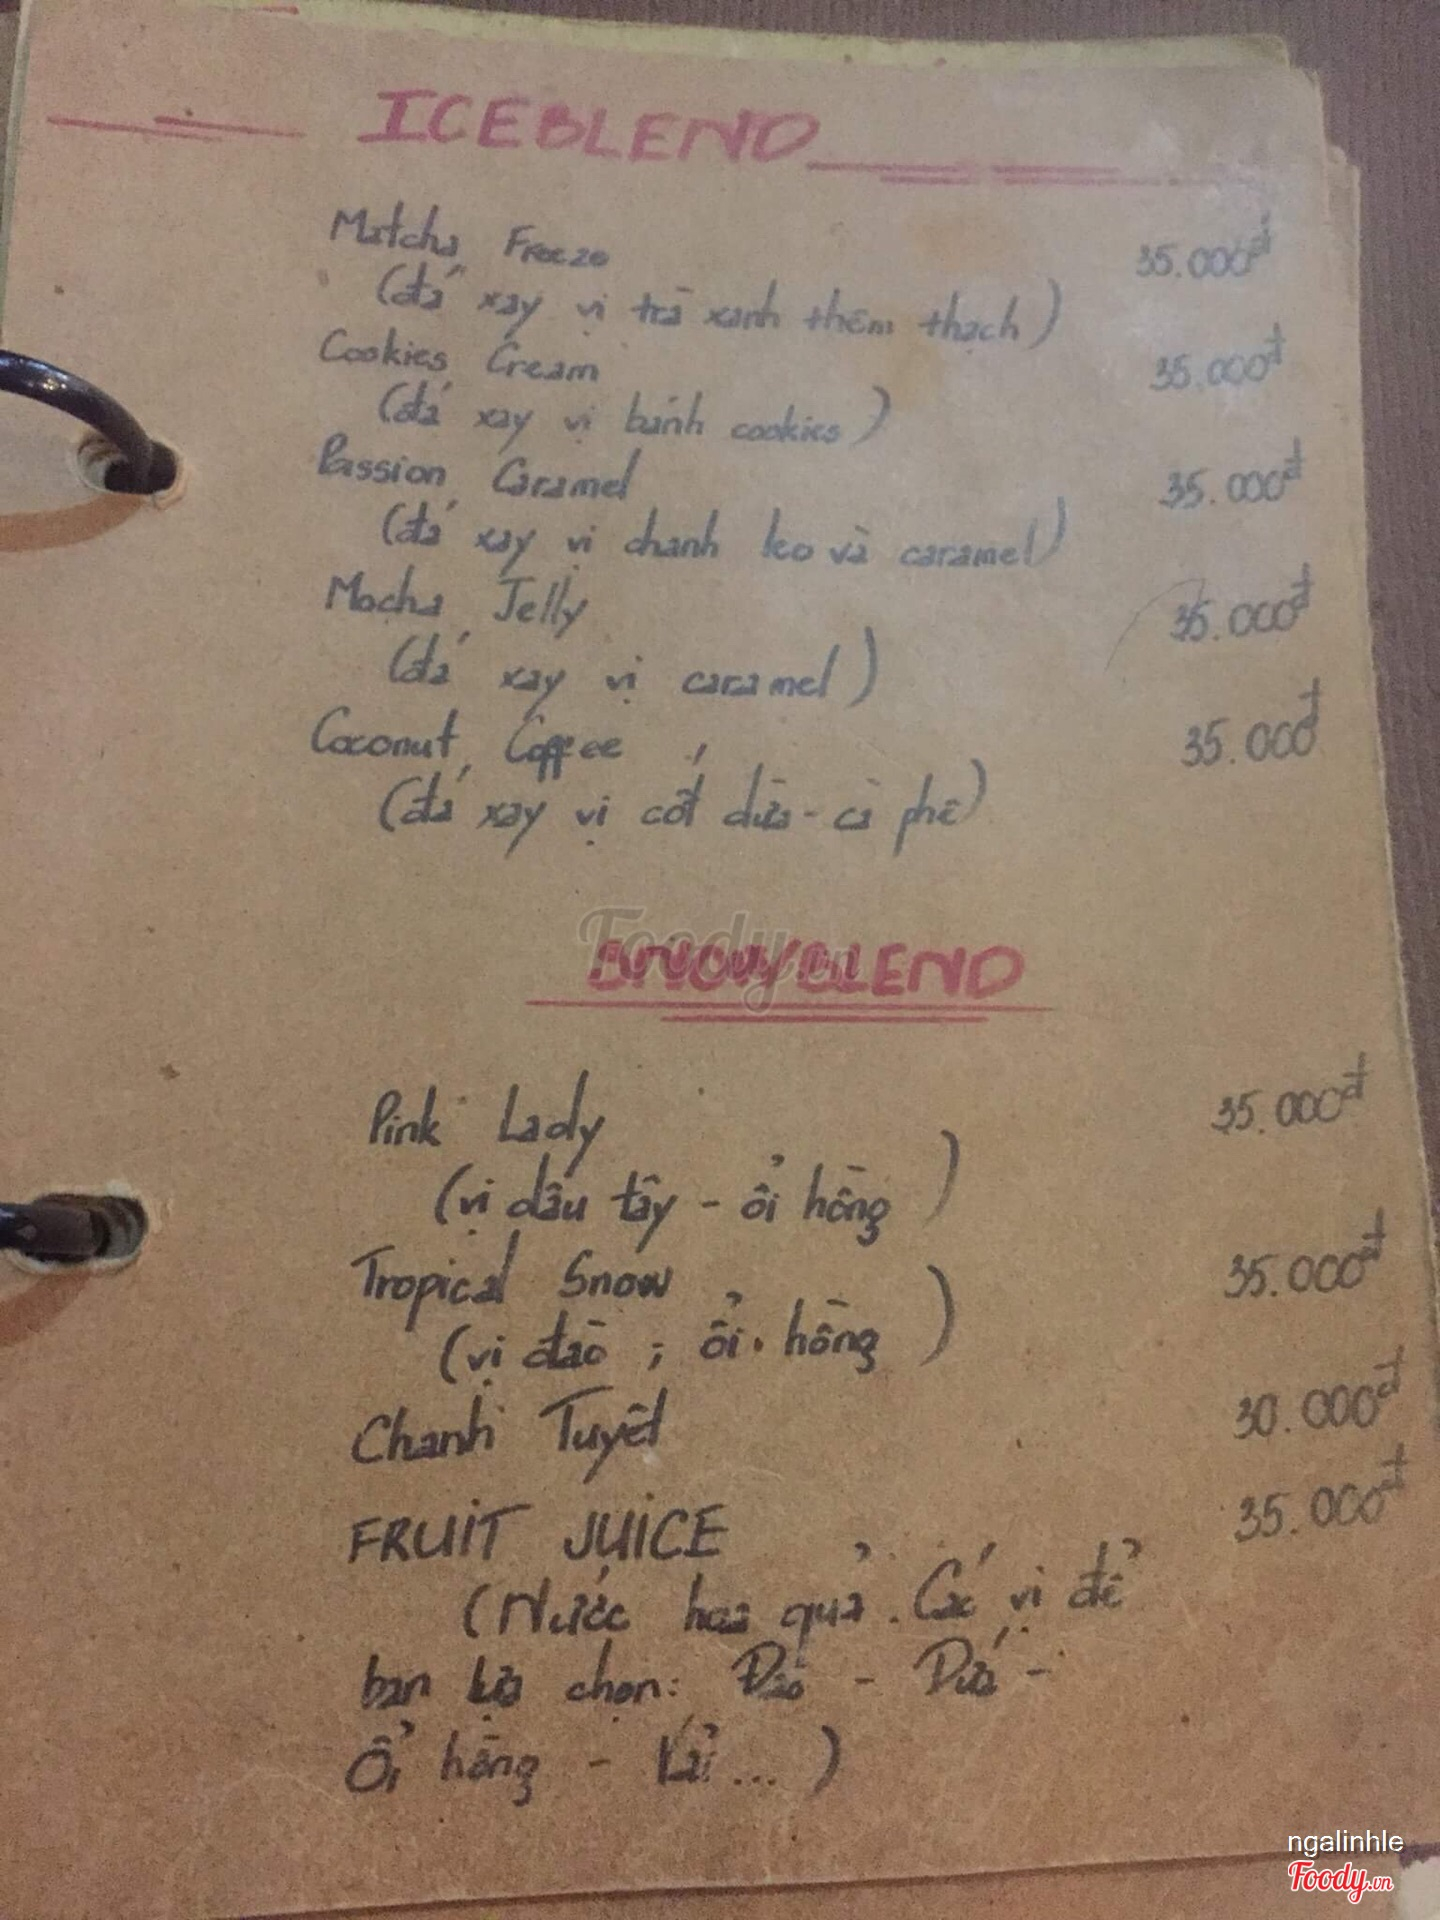 ICEBLEND
Matcha Freeze 35.000đ
(đá xay vị trà xanh thêm thạch)
Cookies Cream 35.000đ
(đá xay vị bánh cookies)
Passion Caramel 35.000đ
(đá xay vị chanh leo và caramel)
Mocha Jelly 35.000đ
(đá xay vị caramel)
Coconut Coffee 35.000đ
(đá xay vị cốt dừa - cà phê)
Foody.vn
SNOWBLEND
Pink Lady 35.000đ
(vị dâu tây - ổi hồng)
Tropical Snow 35.000đ
(vị đào ; ổi hồng)
Chanh Tuyết 30.000đ
FRUIT JUICE 35.000đ
(Nước hoa quả. Các vị để
bạn lựa chọn: Đào - Dứa -
Ổi hồng - Vải ... )
ngalinhle
Foody.vn